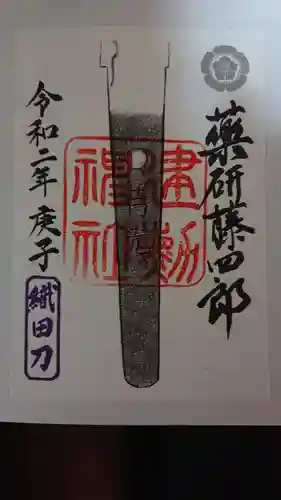 薬研藤四郎
建勲
神社
令和二年 庚子
織田刀